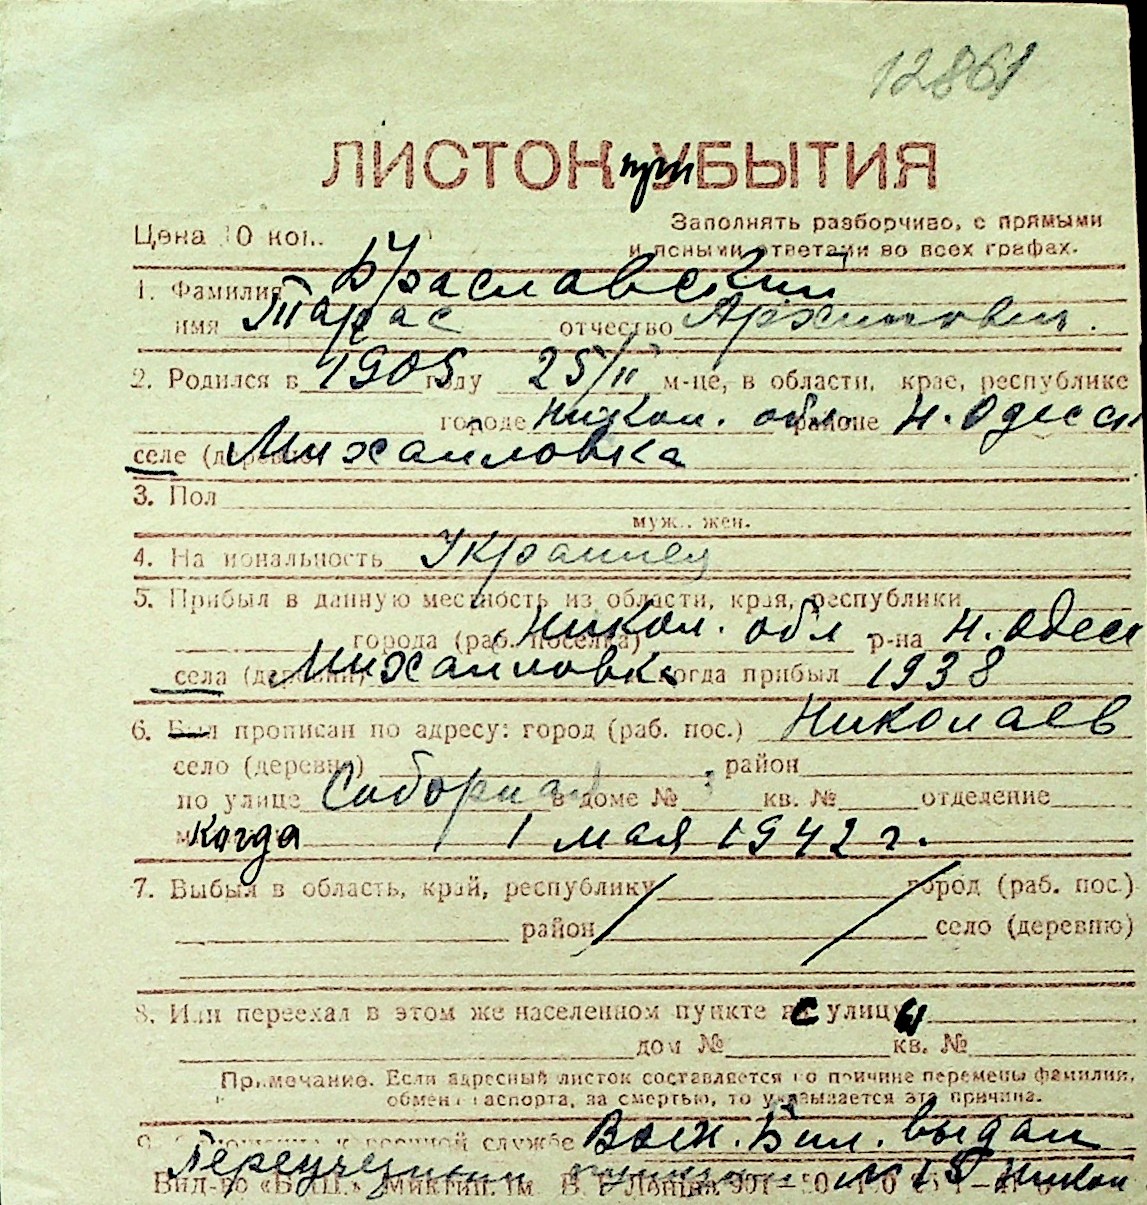 12861
ЛИСТОК при УБЫТИЯ
Цена 10 коп.
Заполнять разборчиво, с прямыми
и ясными ответами во всех графах.
1. Фамилия Браславский
имя Тарас отчество Архипович.
2. Родился в 1905 году 25/II м-це, в области, крае, республике
городе Никол. обл. районе Н. Одесск
селе (деревне) Михайловка
3. Пол
муж., жен.
4. Национальность Украинец
5. Прибыл в данную местность из области, края, республики
города (раб. поселка) Никол. обл р-на Н. Одесс
села (деревни) Михайловка когда прибыл 1938
6. Был прописан по адресу: город (раб. пос.) Николаев
село (деревня) район
по улице Соборная в доме № кв. № отделение
когда 1 мая 1942 г.
7. Выбыл в область, край, республику город (раб. пос.)
район село (деревню)
8. Или переехал в этом же населенном пункте с улицы
дом № кв. №
Примечание. Если адресный листок составляется по причине перемены фамилии,
обмена паспорта, за смертью, то указывается эта причина.
9. Отношение к военной службе Воен. Бил. выдан
Изд-во им. В. И. Ленина Никол